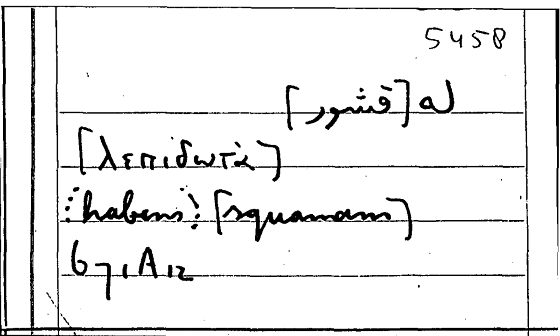 5458
له [قشور]
[λεπιδωτὰ]
⁝habens⁝ [squamam]
671A12